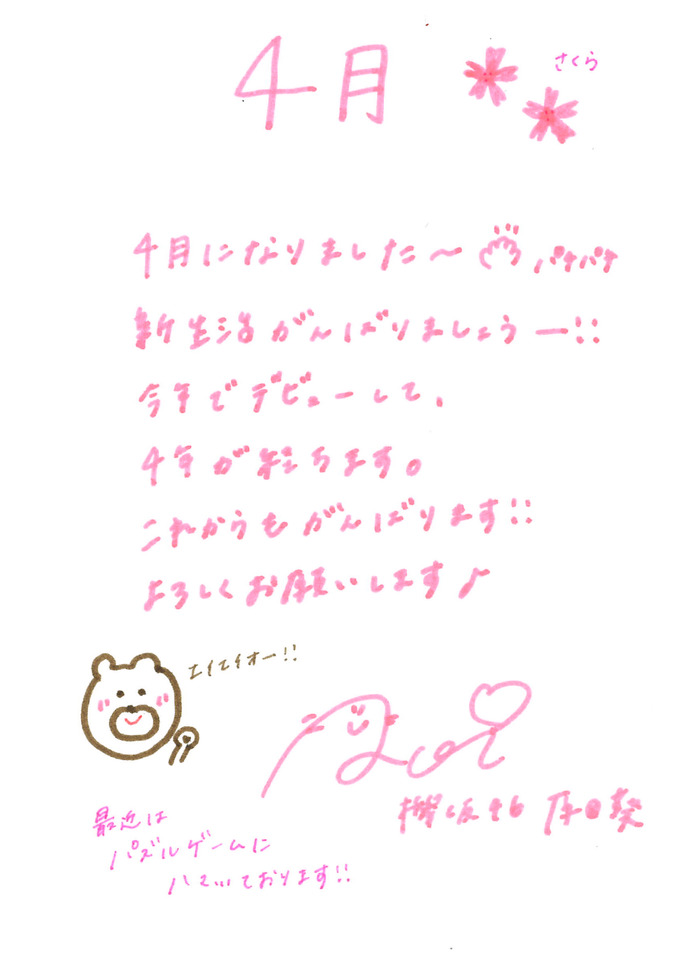 4月
さくら
4月になりました～ パチパチ
新生活がんばりましょうー!!
今年でデビューして、
4年が経ちます。
これからもがんばります!!
よろしくお願いします♪
エイエイオー!!
欅坂46 原田葵
最近は
パズルゲームに
ハマっております!!